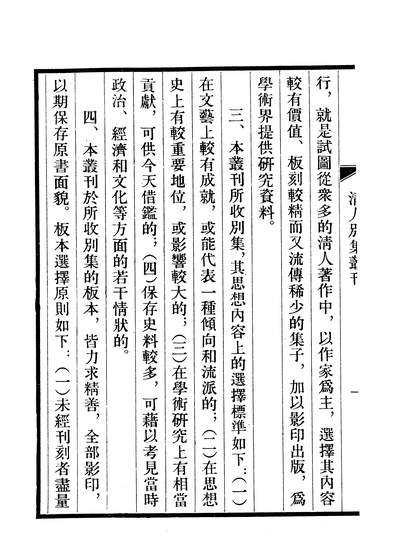 清人別集叢刊
一
行，就是試圖從衆多的清人著作中，以作家爲主，選擇其內容
較有價值、板刻較精而又流傳稀少的集子，加以影印出版，爲
學術界提供研究資料。
三、本叢刊所收別集，其思想內容上的選擇標準如下：（一）
在文藝上較有成就，或能代表一種傾向和流派的；（二）在思想
史上有較重要地位，或影響較大的；（三）在學術研究上有相當
貢獻，可供今天借鑑的；（四）保存史料較多，可藉以考見當時
政治、經濟和文化等方面的若干情狀的。
四、本叢刊於所收別集的板本，皆力求精善，全部影印，
以期保存原書面貌。板本選擇原則如下：（一）未經刊刻者盡量